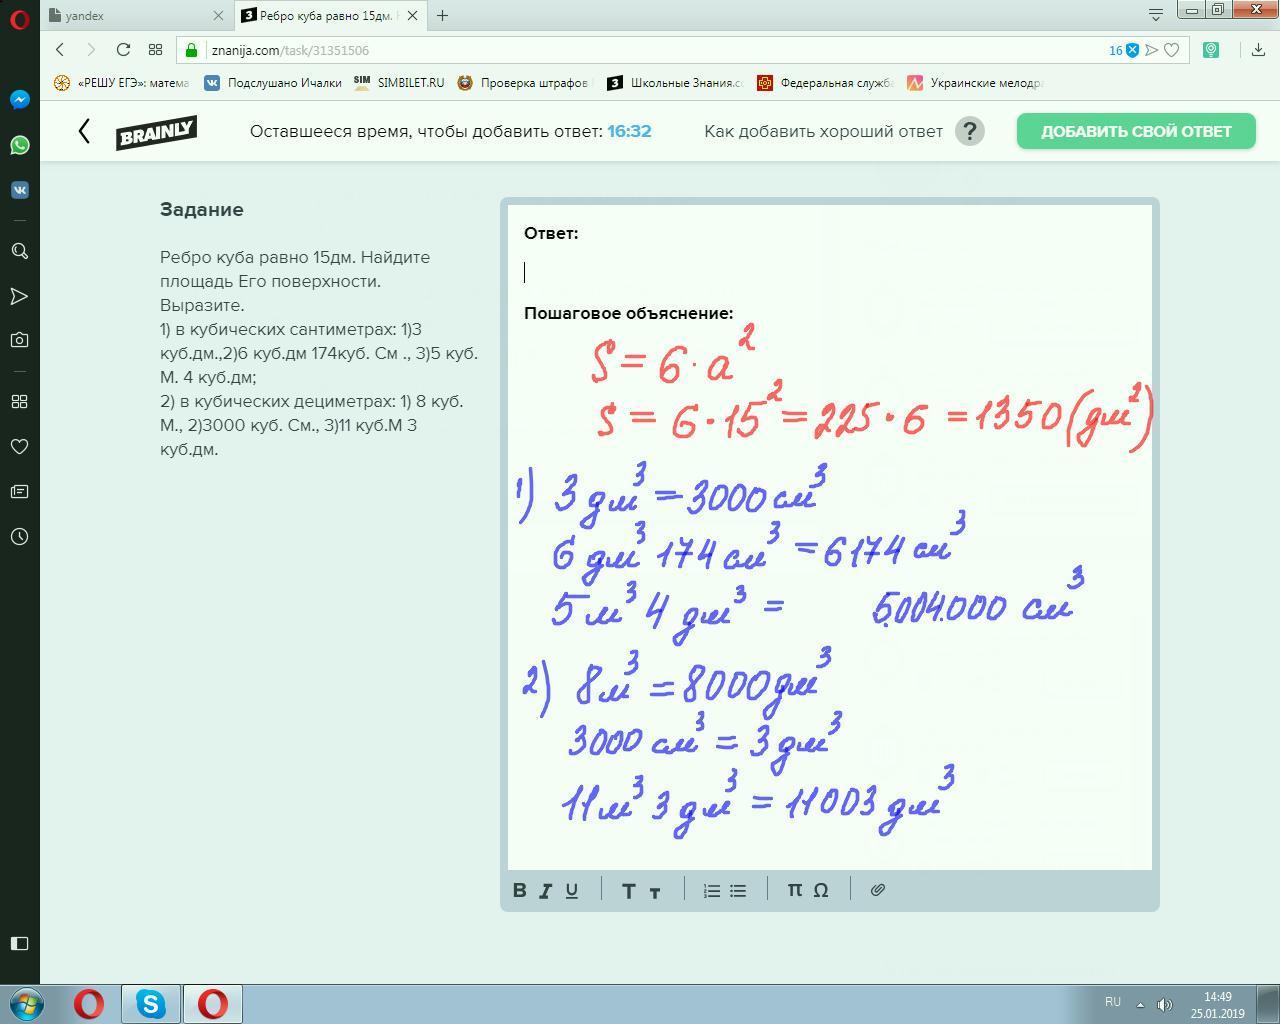 yandex
Ребро куба равно 15дм.
znanija.com/task/31351506
16
«РЕШУ ЕГЭ»: матема
Подслушано Ичалки
SIM
SIMBILET.RU
Проверка штрафов
Школьные Знания.co
Федеральная служба
Украинские мелодра
BRAINLY
Оставшееся время, чтобы добавить ответ: 16:32
Как добавить хороший ответ ?
ДОБАВИТЬ СВОЙ ОТВЕТ
Задание
Ребро куба равно 15дм. Найдите
площадь Его поверхности.
Выразите.
1) в кубических сантиметрах: 1)3
куб.дм.,2)6 куб.дм 174куб. См ., 3)5 куб.
М. 4 куб.дм;
2) в кубических дециметрах: 1) 8 куб.
М., 2)3000 куб. См., 3)11 куб.М 3
куб.дм.
Ответ:
Пошаговое объяснение:
S = 6 · a²
S = 6 · 15² = 225 · 6 = 1350 (дм²)
1) 3 дм³ = 3000 см³
6 дм³ 174 см³ = 6174 см³
5 м³ 4 дм³ = 5.004.000 см³
2) 8 м³ = 8000 дм³
3000 см³ = 3 дм³
11 м³ 3 дм³ = 11003 дм³
B I U T т π Ω
RU
14:49
25.01.2019